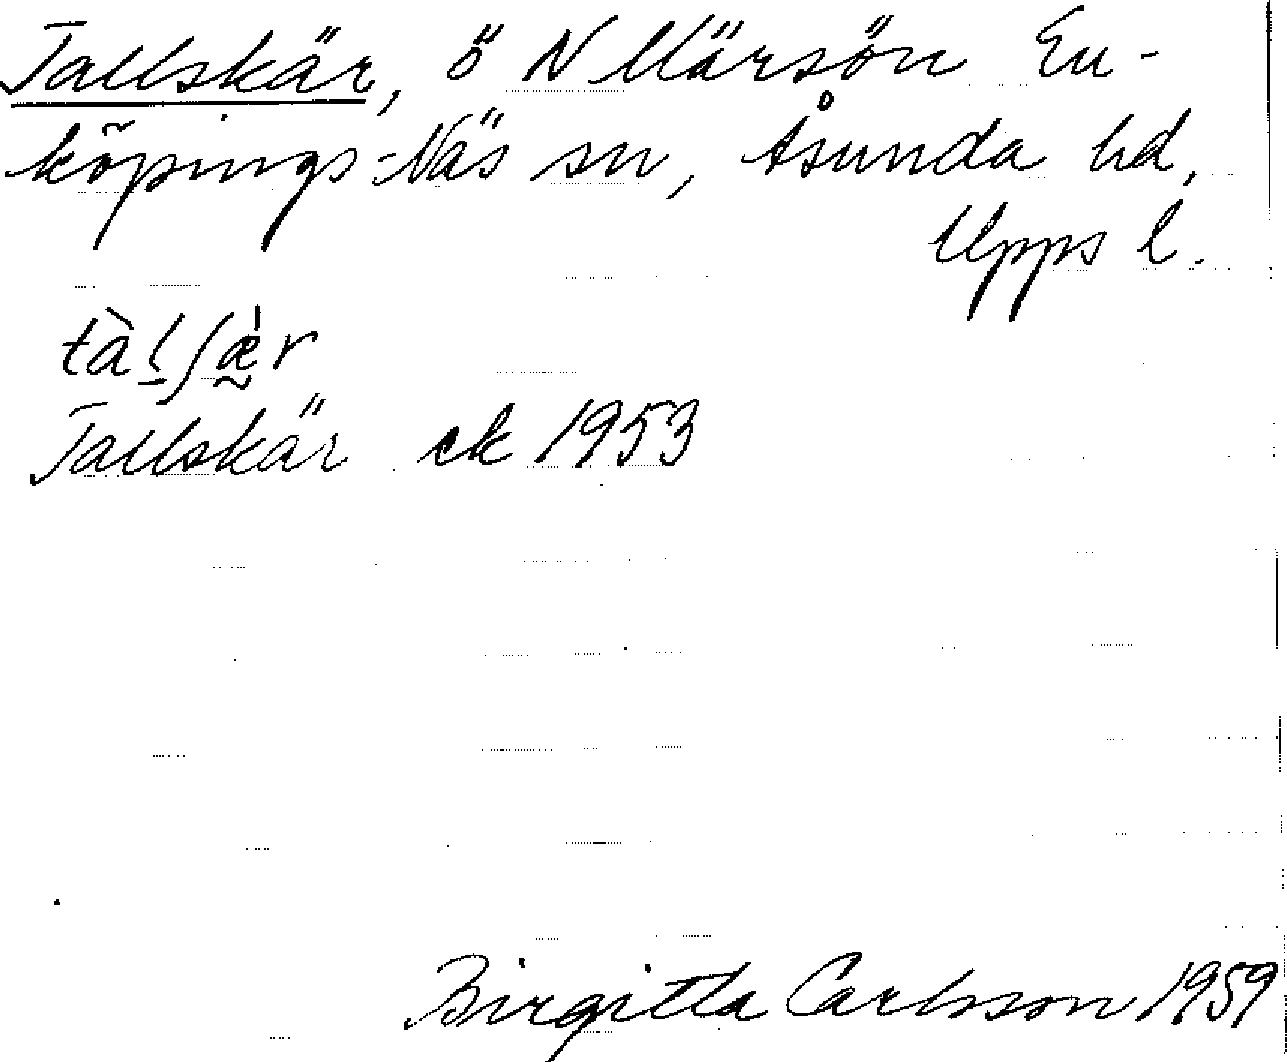 Tallskär, ö N Märsön En-
köpings-Näs sn, Åsunda hd,
Upps l.
tàl̠ʃæ̰̀r
Tallskär ek 1953
Birgitta Carlsson 1959